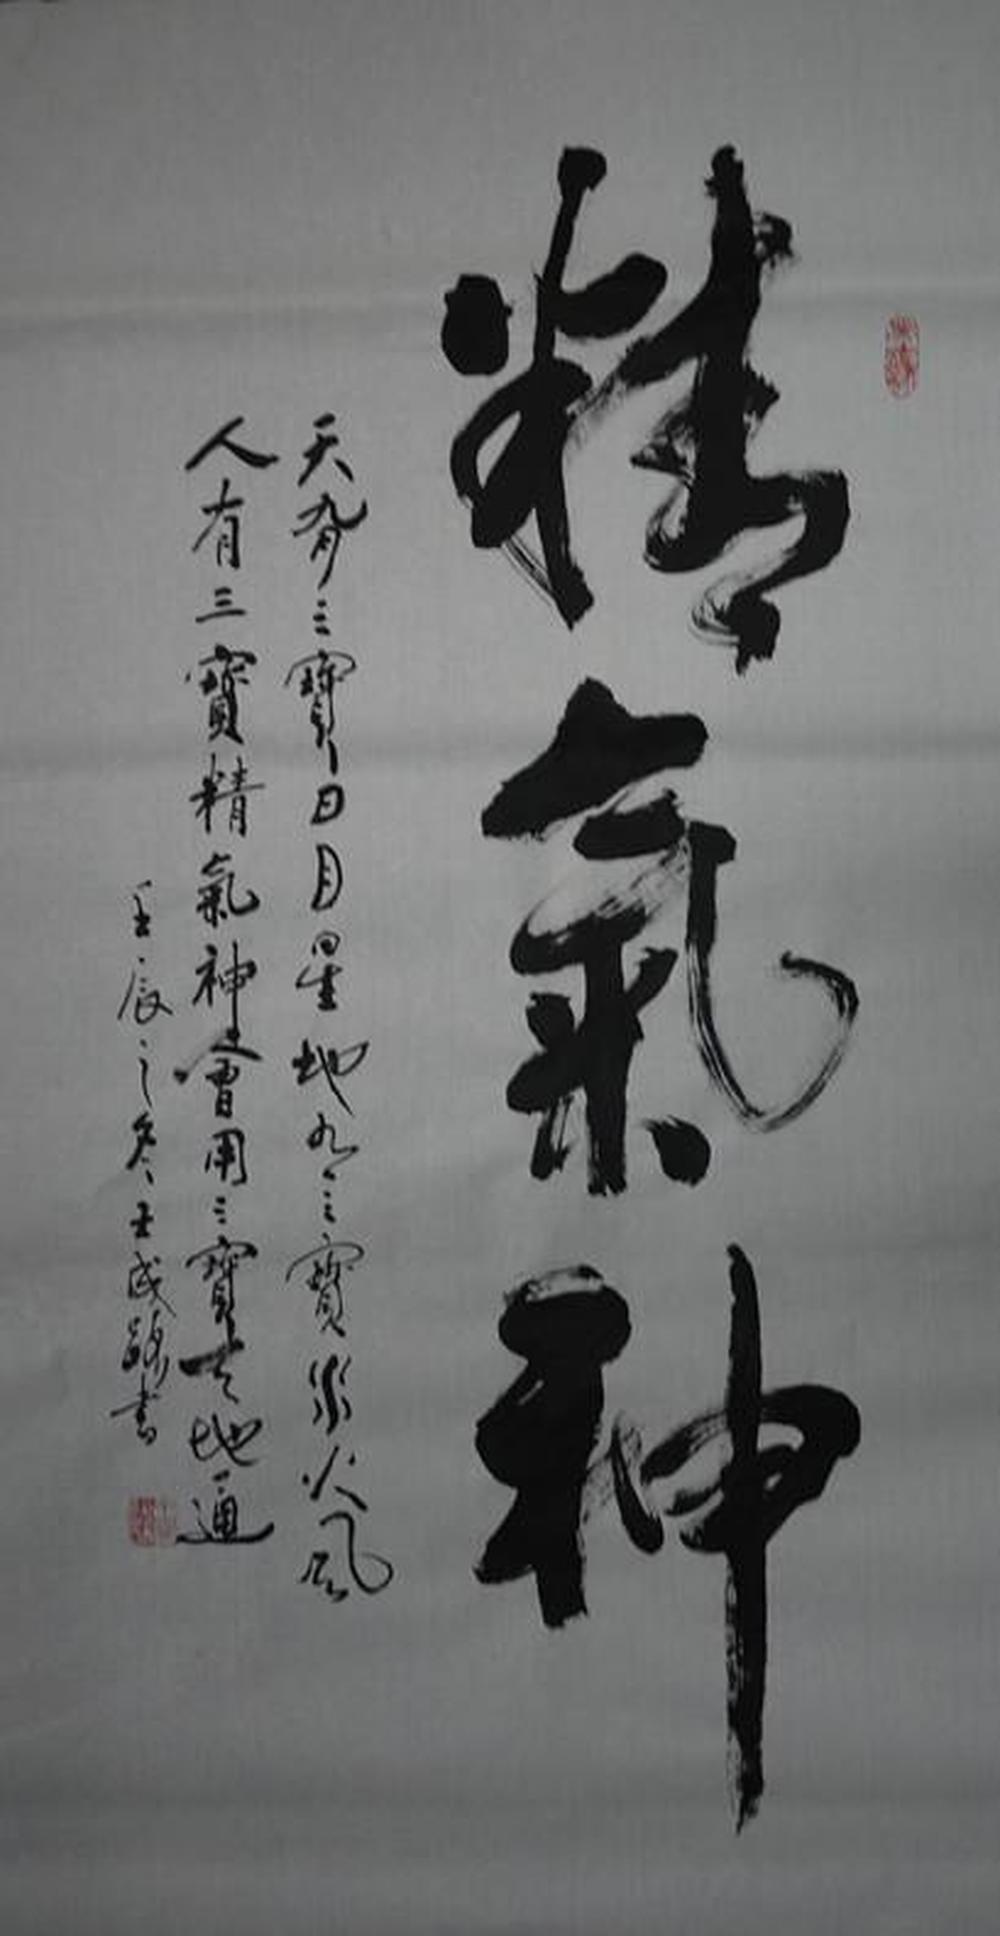 精氣神
天有三寶日月星地有三寶水火風
人有三寶精氣神會用三寶天地通
壬辰之冬王成
書